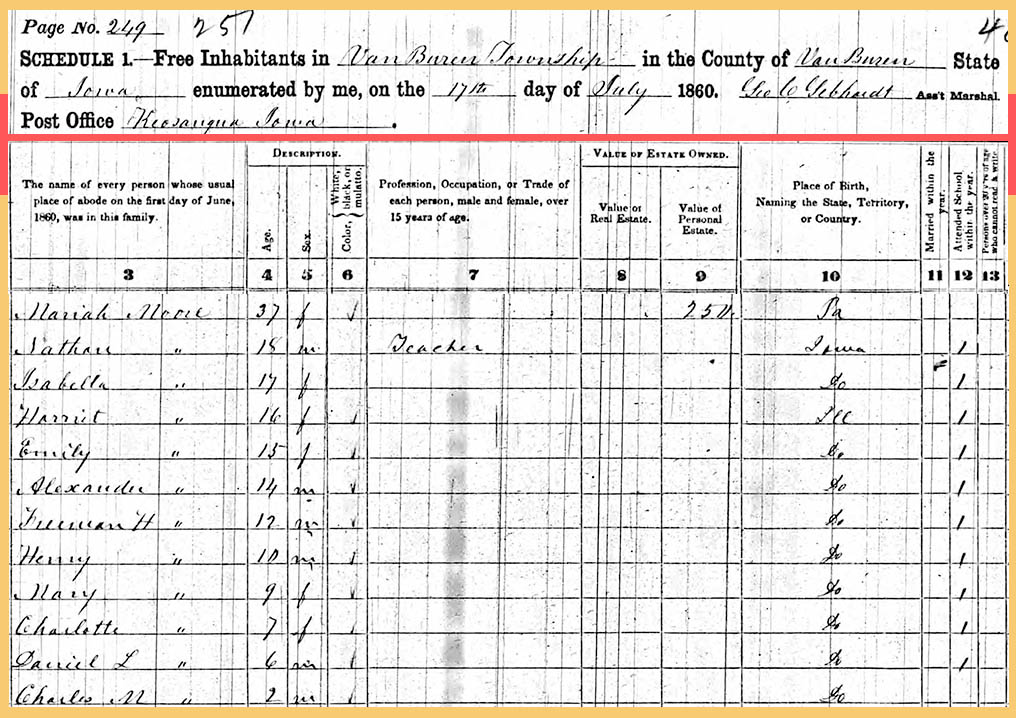 Page No. 249 251
SCHEDULE 1.—Free Inhabitants in Van Buren Township in the County of Van Buren State
of Iowa enumerated by me, on the 17th day of July 1860. Geo C Gebhardt Ass't Marshal.
Post Office Keosauqua Iowa.
The name of every person whose usual place of abode on the first day of June, 1860, was in this family.
DESCRIPTION.
Age.
Sex.
Color, { White, black, or mulatto.
Profession, Occupation, or Trade of each person, male and female, over 15 years of age.
VALUE OF ESTATE OWNED.
Value of Real Estate.
Value of Personal Estate.
Place of Birth, Naming the State, Territory, or Country.
Married within the year.
Attended School within the year.
Persons over 20 y'rs of age who cannot read & write.
3 4 5 6 7 8 9 10 11 12 13
Mariah Moore 37 f 250 Pa
Nathan " 18 m Teacher Iowa 1
Isabella " 17 f Do 1
Harriet " 16 f Ill 1
Emily " 15 f Do 1
Alexander " 14 m Do 1
Freeman H " 12 m Do 1
Henry " 10 m Do 1
Mary " 9 f Do 1
Charlotte " 7 f Do 1
Daniel L " 6 m Do 1
Charles M " 2 m Do